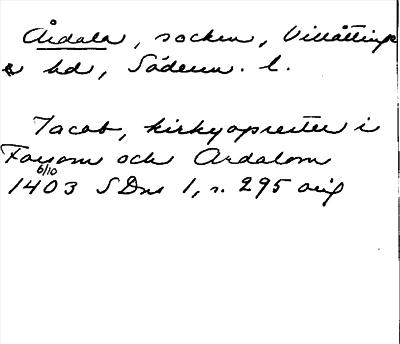 Årdala, socken, Villåttinge
hd, Söderm. l.
Jacob, kirkyoprester i
Forsom och Ardalom
6/10
1403 SDns 1, n. 295 orig